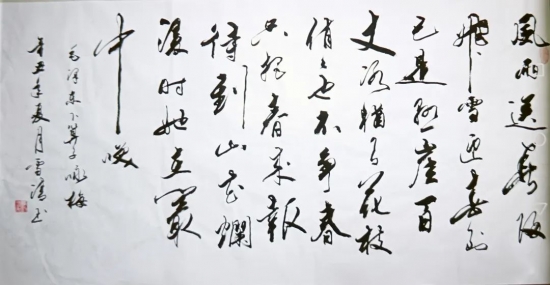 風雨送春归
飛雪迎春到
已是悬崖百
丈冰猶有花枝
俏〻也不争春
只把春来報
待到山花爛
漫時她在叢
中笑
毛泽东卜算子咏梅
辛丑年夏月雪书